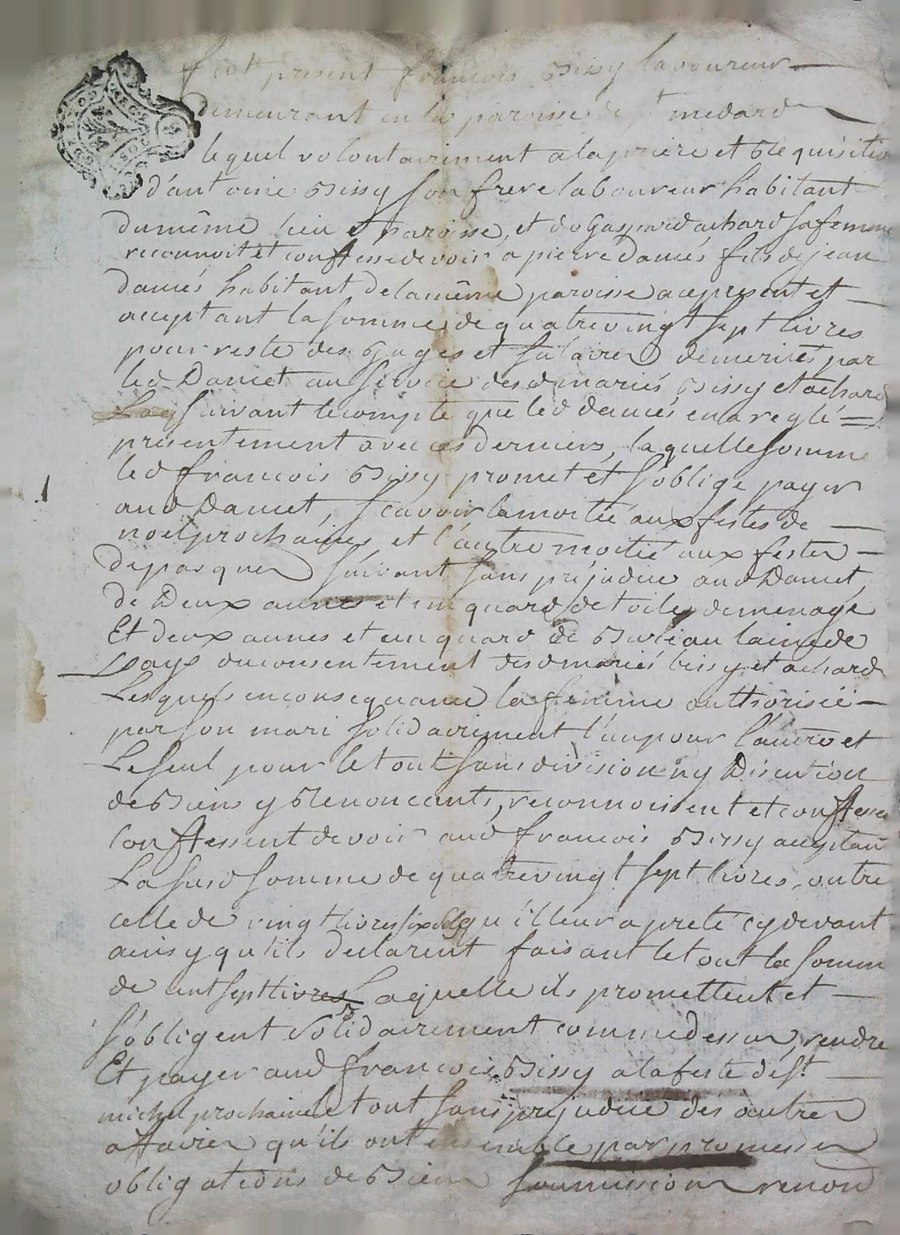 fut présent françois Bissy laboureur
Demeurant en la paroisse de St medard
lequel volontairement a la prière et Requisition
d'antoine Bissy Son frere laboureur habitant
du même lieu et paroisse, et de Gasparde achard sa femme
reconnoit et confesse devoir a pierre Damés fils de jean
damés habitant de la même paroisse acy present et
acceptant la somme de quatre vingt sept livres
pour reste des Gages et salaires demerités par
led Damet au service desd mariés Bissy et achard
suivant le compte que led damés en a reglé
présentement avec ces derniers, laquelle somme
led françois Bissy promet et s'oblige payer
aud Damet, scavoir la moitié aux festes de
noel prochaines et l'autre moitié aux festes
de pasques suivant sans préjudice aud Damet
de Deux aunes et un quard de toile de menage
Et deux aunes et un quard de Bureau laine de
pays du consentement desd mariés bissy et achard
Lesquels en consequance la femme authorisée
par son mari solidairement l'un pour l'autre et
Le seul pour le tout sans division ny Discution
de Biens y Renoncants, reconnoissent et confessent
Confessent devoir aud françois Bissy acceptant
La susd somme de quatre vingt sept livres, outre
celle de vingt livres qu'il leur a preté cy devant
ainsy qu'ils declarent faisant le tout la somme
de cent sept livres Laquelle ils promettent et
s'obligent solidairement comme dessus, rendre
Et payer aud françois Bissy a la feste de St
michel prochaine le tout sans prejudice des autres
affaires qu'ils ont ensemble par promesses
obligations de Biens soumissions renon